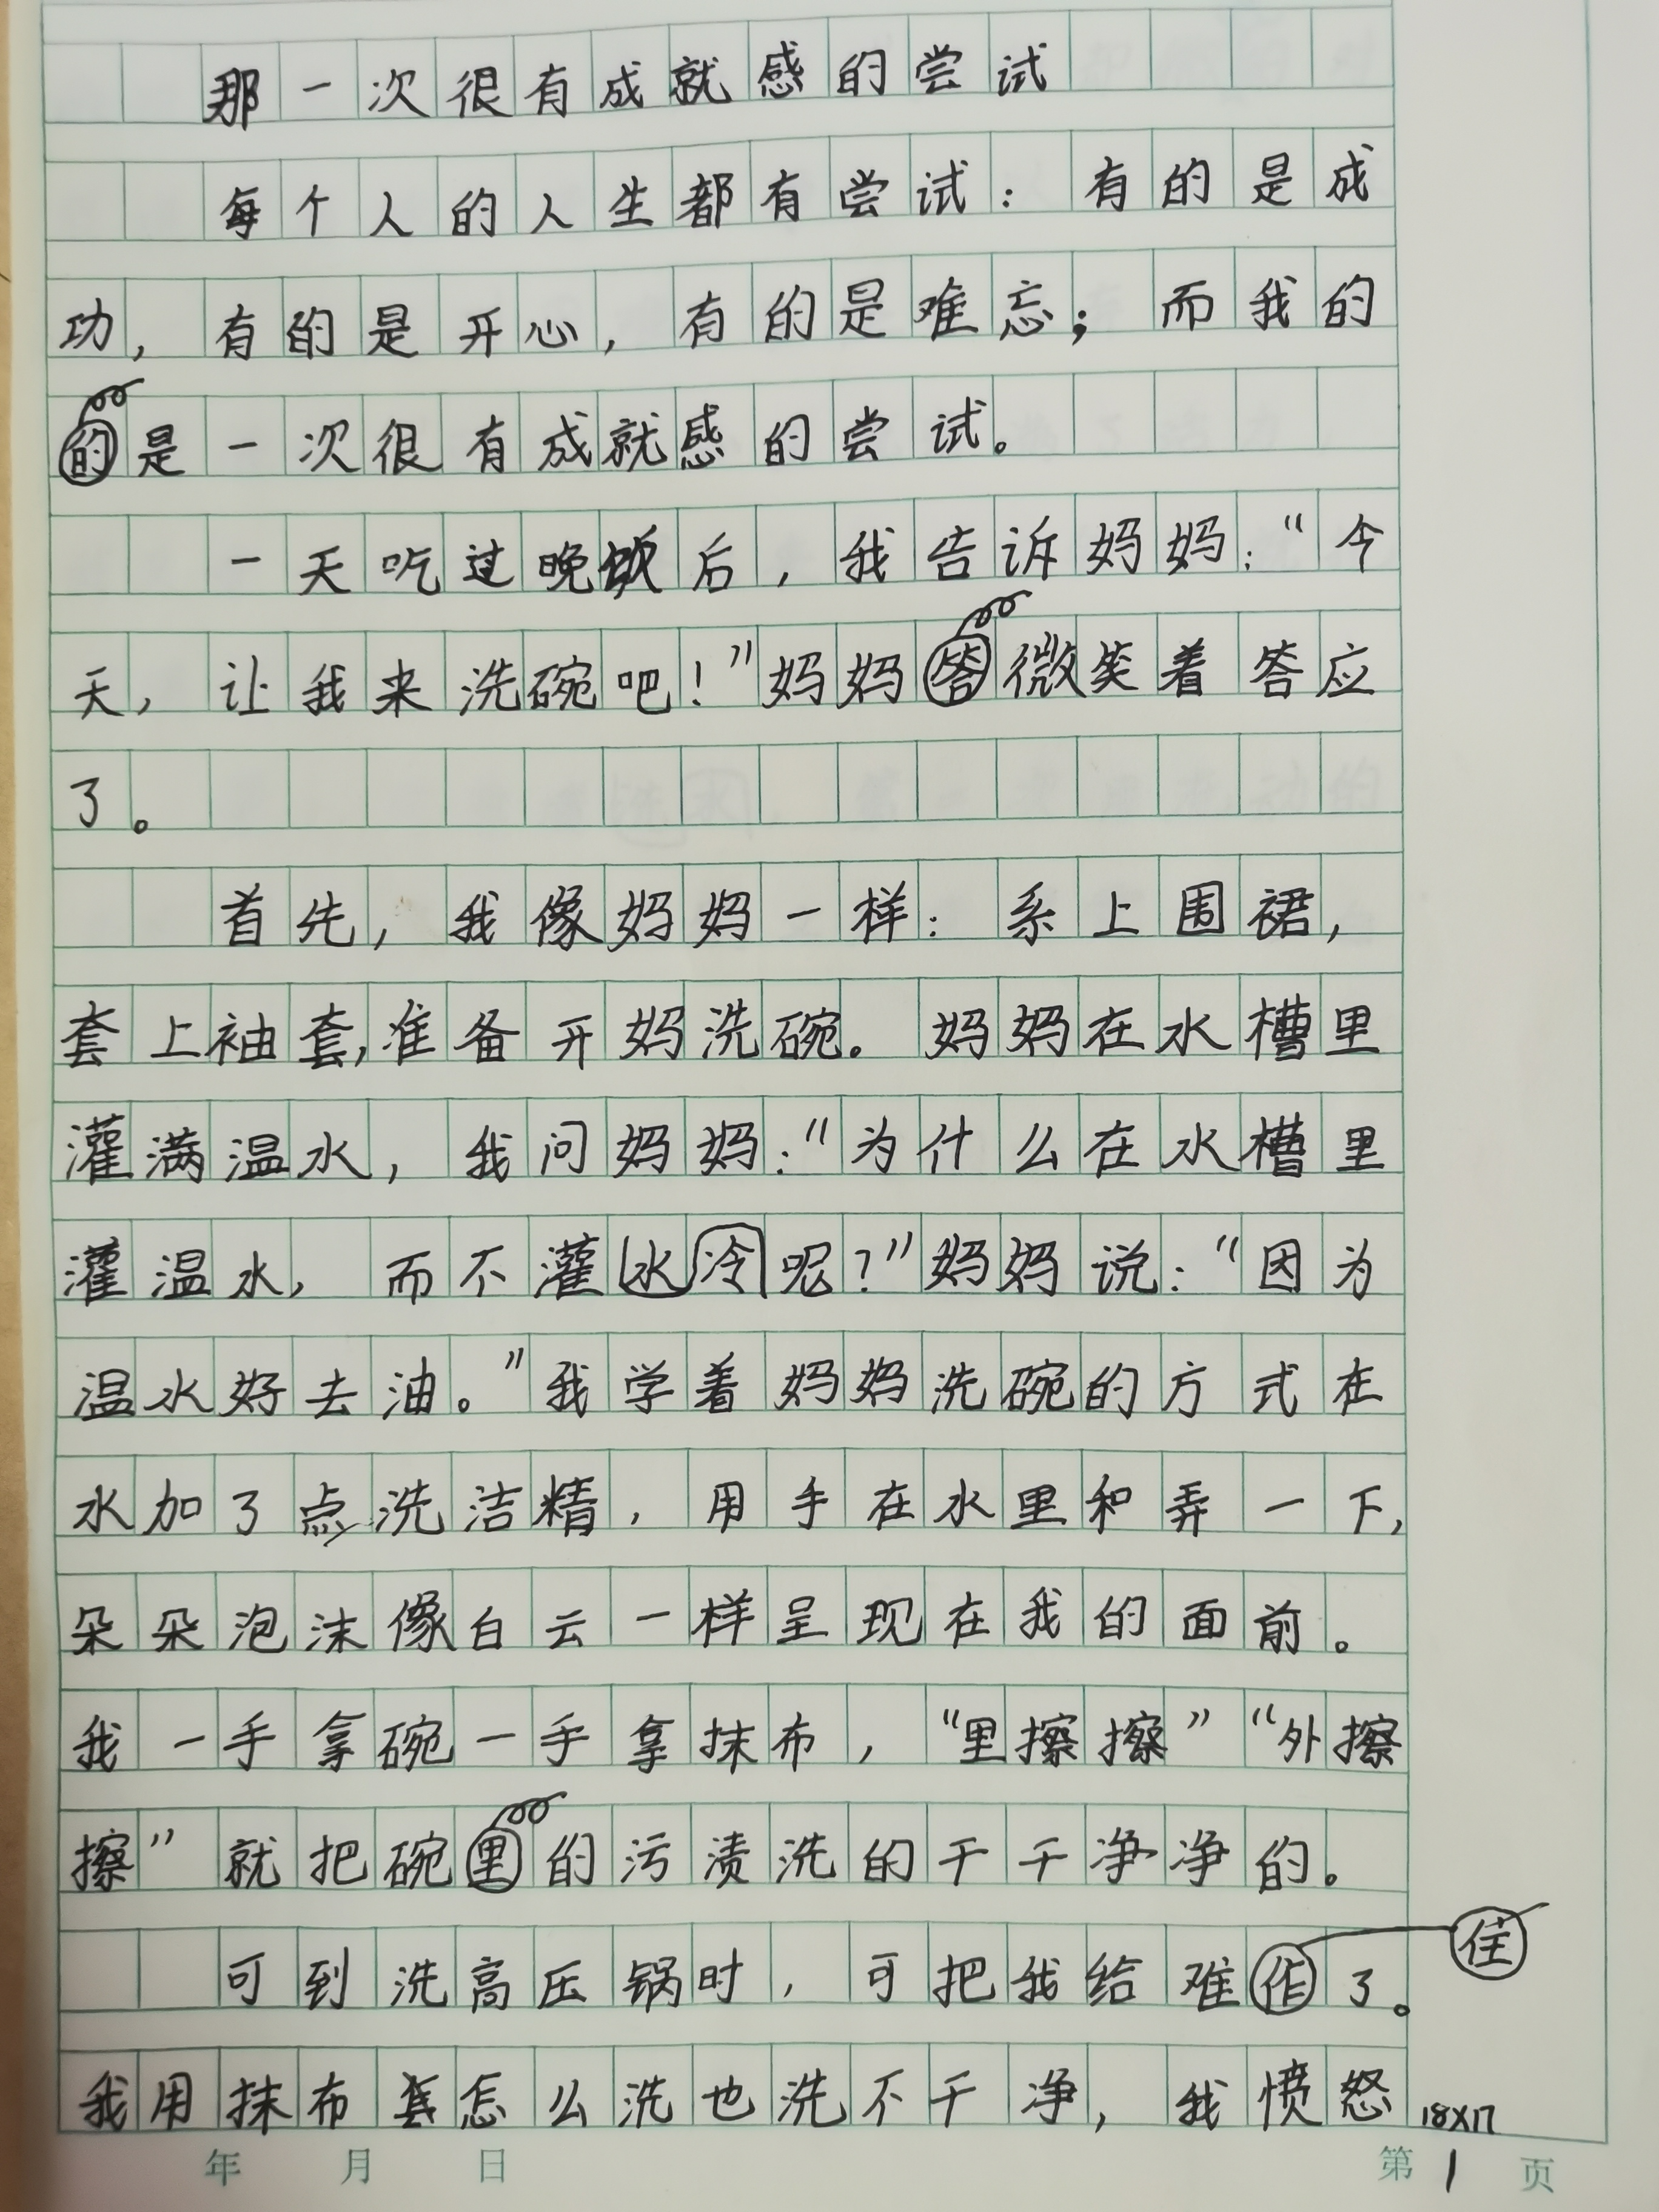 那一次很有成就感的尝试
每个人的人生都有尝试：有的是成
功，有的是开心，有的是难忘；而我的
的是一次很有成就感的尝试。
一天吃过晚饭后，我告诉妈妈：“今
天，让我来洗碗吧！”妈妈答微笑着答应
了。
首先，我像妈妈一样：系上围裙，
套上袖套，准备开妈洗碗。妈妈在水槽里
灌满温水，我问妈妈：“为什么在水槽里
灌温水，而不灌水冷呢？”妈妈说：“因为
温水好去油。”我学着妈妈洗碗的方式在
水加了点洗洁精，用手在水里和弄一下，
朵朵泡沫像白云一样呈现在我的面前。
我一手拿碗一手拿抹布，“里擦擦”“外擦
擦”就把碗里的污渍洗的干干净净的。
可到洗高压锅时，可把我给难作了。
住
我用抹布套怎么洗也洗不干净，我愤怒
18X17
年 月 日 第1页